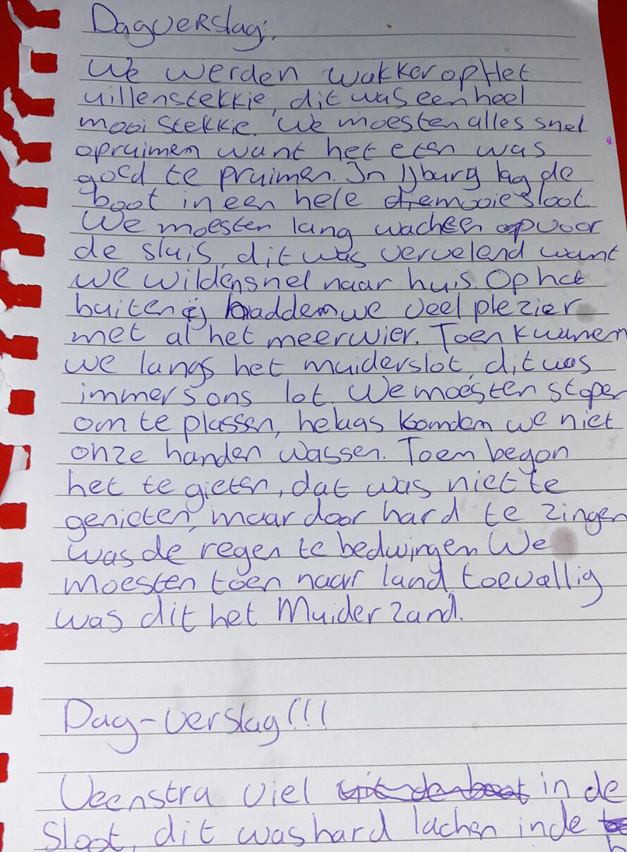 Dagverslag:
We werden wakker op Het
uillenstekkie, dit was een heel
mooi stekkie. We moesten alles snel
opruimen want het eten was
goed te pruimen. In Ijburg lag de
boot in een hele mooie sloot
We moesten lang wachen voor
de sluis, dit was vervelend want
we wilden snel naar huis. Op het
buiten ij hadden we veel plezier
met al het meerwier. Toen kwamen
we langs het muiderslot, dit was
immers ons lot. We moesten stopen
om te plassen, helaas konden we niet
onze handen wassen. Toen begon
het te gieten, dat was niet te
genieten, maar door hard te zingen
was de regen te bedwingen. We
moesten toen naar land, toevallig
was dit het Muiderzand.
Dag-verslag!!!
Veenstra viel uit de boot in de
sloot, dit was hard lachen in de